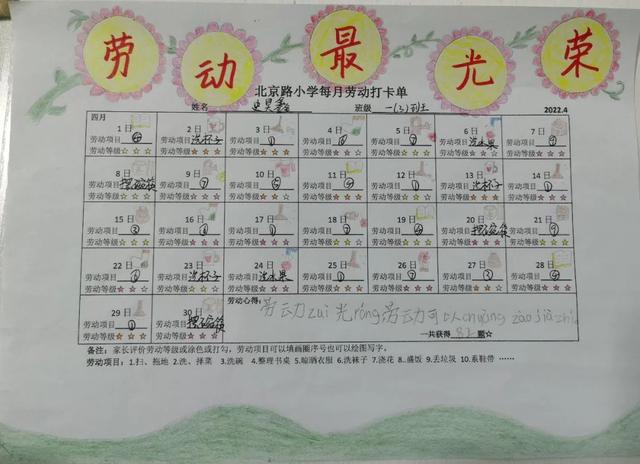 劳动最光荣
北京路小学每月劳动打卡单
姓名 班级 一(3)班 2022.4
四月
1日 2日 3日 4日 5日 6日 7日
劳动项目④ 劳动项目洗杯子 劳动项目① 劳动项目 劳动项目⑦ 劳动项目洗水果 劳动项目
劳动等级☆☆☆ 劳动等级☆☆☆ 劳动等级☆☆☆ 劳动等级☆☆☆ 劳动等级☆☆☆ 劳动等级☆☆☆ 劳动等级☆☆☆
8日 9日 10日 11日 12日 13日 14日
劳动项目摆碗筷 劳动项目⑦ 劳动项目 劳动项目 劳动项目① 劳动项目洗杯子 劳动项目①
劳动等级☆☆☆ 劳动等级☆☆☆ 劳动等级☆☆☆ 劳动等级☆☆☆ 劳动等级☆☆☆ 劳动等级☆☆☆ 劳动等级☆☆☆
15日 16日 17日 18日 19日 20日 21日
劳动项目③ 劳动项目① 劳动项目① 劳动项目⑦ 劳动项目④ 劳动项目摆碗筷 劳动项目⑨
劳动等级☆☆☆ 劳动等级☆☆☆ 劳动等级☆☆☆ 劳动等级☆☆☆ 劳动等级☆☆☆ 劳动等级☆☆☆ 劳动等级☆☆☆
22日 23日 24日 25日 26日 27日 28日
劳动项目 劳动项目洗杯子 劳动项目洗水果 劳动项目① 劳动项目⑦ 劳动项目③ 劳动项目
劳动等级☆☆☆ 劳动等级☆☆☆ 劳动等级☆☆☆ 劳动等级☆☆☆ 劳动等级☆☆☆ 劳动等级☆☆☆ 劳动等级☆☆☆
29日 30日 劳动心得:
劳动项目① 劳动项目摆碗筷 劳动zuì光róng劳动可以chuàng zào jià zhí
劳动等级☆☆☆ 劳动等级☆☆☆ 一共获得82颗☆
备注:家长评价劳动等级或涂色或打勾,劳动项目可以填画圈序号也可以绘图写字。
劳动项目:1.扫、拖地 2.洗、择菜 3.洗碗 4.整理书桌 5.晾晒衣服 6.洗袜子 7.浇花 8.盛饭 9.丢垃圾 10.系鞋带 ……